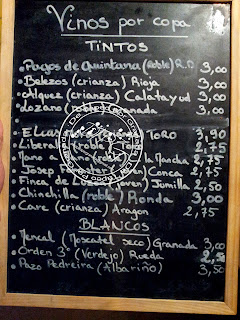 Vinos por copa
TINTOS
• Pagos de Quintana (Roble) R.D 3,00
• Belezos (crianza) Rioja 3,00
• Alquez (crianza) Calatayud 3,00
• Lozano (roble) 3,00
• TORO 3,90
• Liberal (roble) 2,75
• Mano a la Mancha 2,75
• Josep Conca 2,75
• Finca de (joven) Jumilla 2,50
• Chinchilla (roble) Ronda 3,00
• Care (crianza) Aragon 2,75
BLANCOS
• (Moscatel seco) Granada 3,00
• Orden 3ª (Verdejo) Rueda 2,50
• Pazo Pedreira (Albariño) 3,50